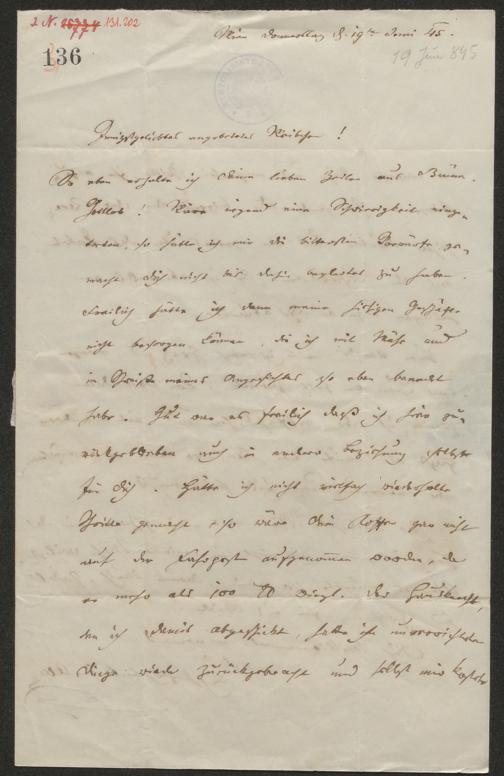 I. N. 131.202
136
Wien Donnerstag d. 19ten Juni 45.
19 Juni 845
Innigstgeliebtes angebetetes Weibchen !
So eben erhalte ich deine lieben Zeilen aus Brünn.
Gottlob ! Wäre irgend eine Schwierigkeit einge-
treten, so hätte ich mir die bittersten Vorwürfe ge-
macht dich nicht bis dahin begleitet zu haben.
Freilich hätte ich dann meine hiesigen Geschäfte
nicht besorgen können, die ich mit Mühe und
im Schweiße meines Angesichtes so eben beendet
habe. Gut war es freilich daß ich hier zu-
rückgeblieben auch in anderer Beziehung selbst
für dich. Hätte ich nicht vielfach wiederholte
Schritte gemacht so wäre dein Koffer gar nicht
auf der Fahrpost aufgenommen worden, da
er mehr als 100 ℔ wiegt. Der Hausknecht,
den ich damit abgeschickt, hatte ihn unverrichteter
Dinge wieder zurückgebracht und selbst mir kostete